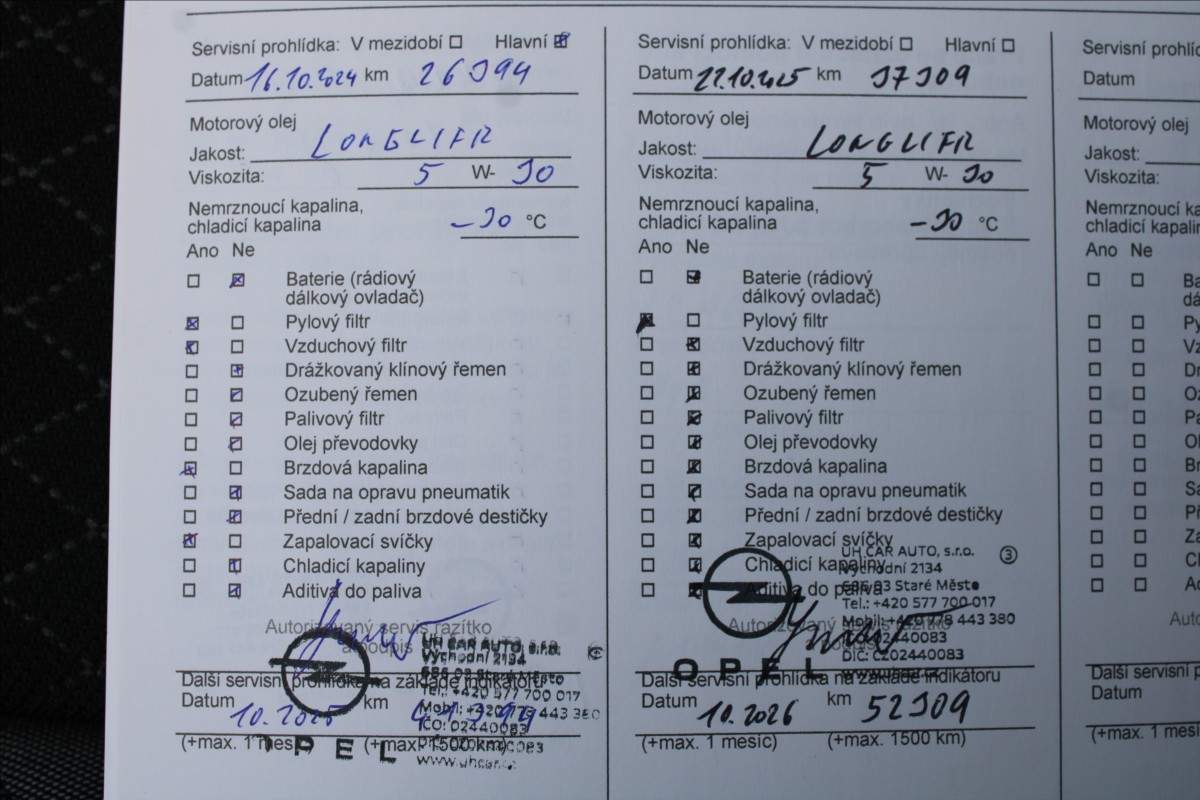 Servisní prohlídka: V mezidobí Hlavní
Datum 16.10.2024 km 26394
Motorový olej
Jakost: LONGLIFE
Viskozita: 5 W- 30
Nemrznoucí kapalina,
chladicí kapalina -30 °C
Ano Ne
Baterie (rádiový
dálkový ovladač)
Pylový filtr
Vzduchový filtr
Drážkovaný klínový řemen
Ozubený řemen
Palivový filtr
Olej převodovky
Brzdová kapalina
Sada na opravu pneumatik
Přední / zadní brzdové destičky
Zapalovací svíčky
Chladicí kapaliny
Aditiva do paliva
Autorizovaný servis razítko
a podpis
UH CAR AUTO, s.r.o.
Východní 2134
686 03 Staré Město
Tel.: +420 577 700 017
Mobil: +420 778 443 380
IČO: 02440083
www.uhcar.cz
OPEL
Další servisní prohlídka na základě indikátoru
Datum 10.2025 km
(+max. 1 měsíc) (+max. 1500 km)
Servisní prohlídka: V mezidobí Hlavní
Datum 22.10.2025 km 37309
Motorový olej
Jakost: LONGLIFE
Viskozita: 5 W- 30
Nemrznoucí kapalina,
chladicí kapalina -30 °C
Ano Ne
Baterie (rádiový
dálkový ovladač)
Pylový filtr
Vzduchový filtr
Drážkovaný klínový řemen
Ozubený řemen
Palivový filtr
Olej převodovky
Brzdová kapalina
Sada na opravu pneumatik
Přední / zadní brzdové destičky
Zapalovací svíčky
Chladicí kapaliny
Aditiva do paliva
Autorizovaný servis razítko
UH CAR AUTO, s.r.o. 3
Východní 2134
686 03 Staré Město
Tel.: +420 577 700 017
Mobil: +420 778 443 380
IČO: 02440083
DIČ: CZ02440083
OPEL
Další servisní prohlídka na základě indikátoru
Datum 10.2026 km 52309
(+max. 1 měsíc) (+max. 1500 km)
Servisní prohlíd
Datum
Motorový olej
Jakost:
Viskozita:
Nemrznoucí ka
chladicí kapalin
Ano Ne
Ba
dá
Py
Vz
Dr
Oz
Pa
Ol
Br
Sa
Př
Za
Ch
Ad
Auto
Další servisní p
Datum
(+max. 1 měsí